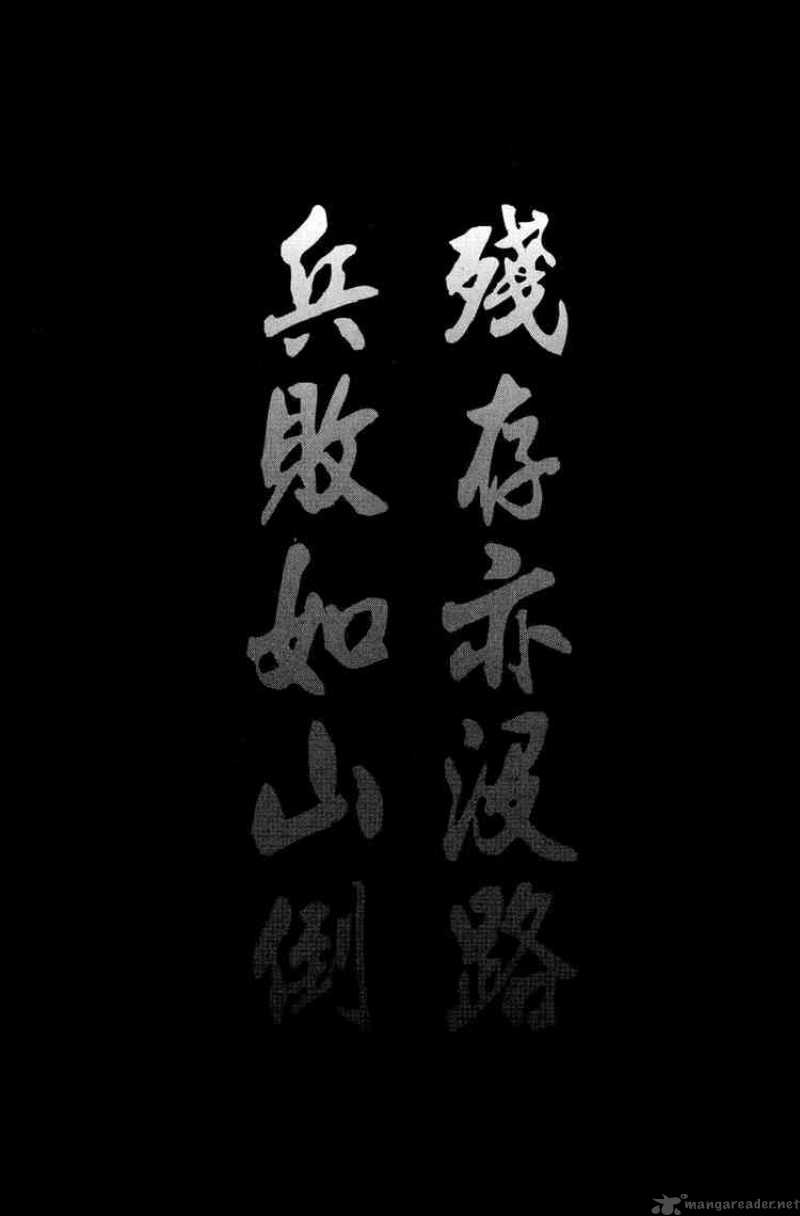 殘存亦没路
兵敗如山倒
mangareader.net